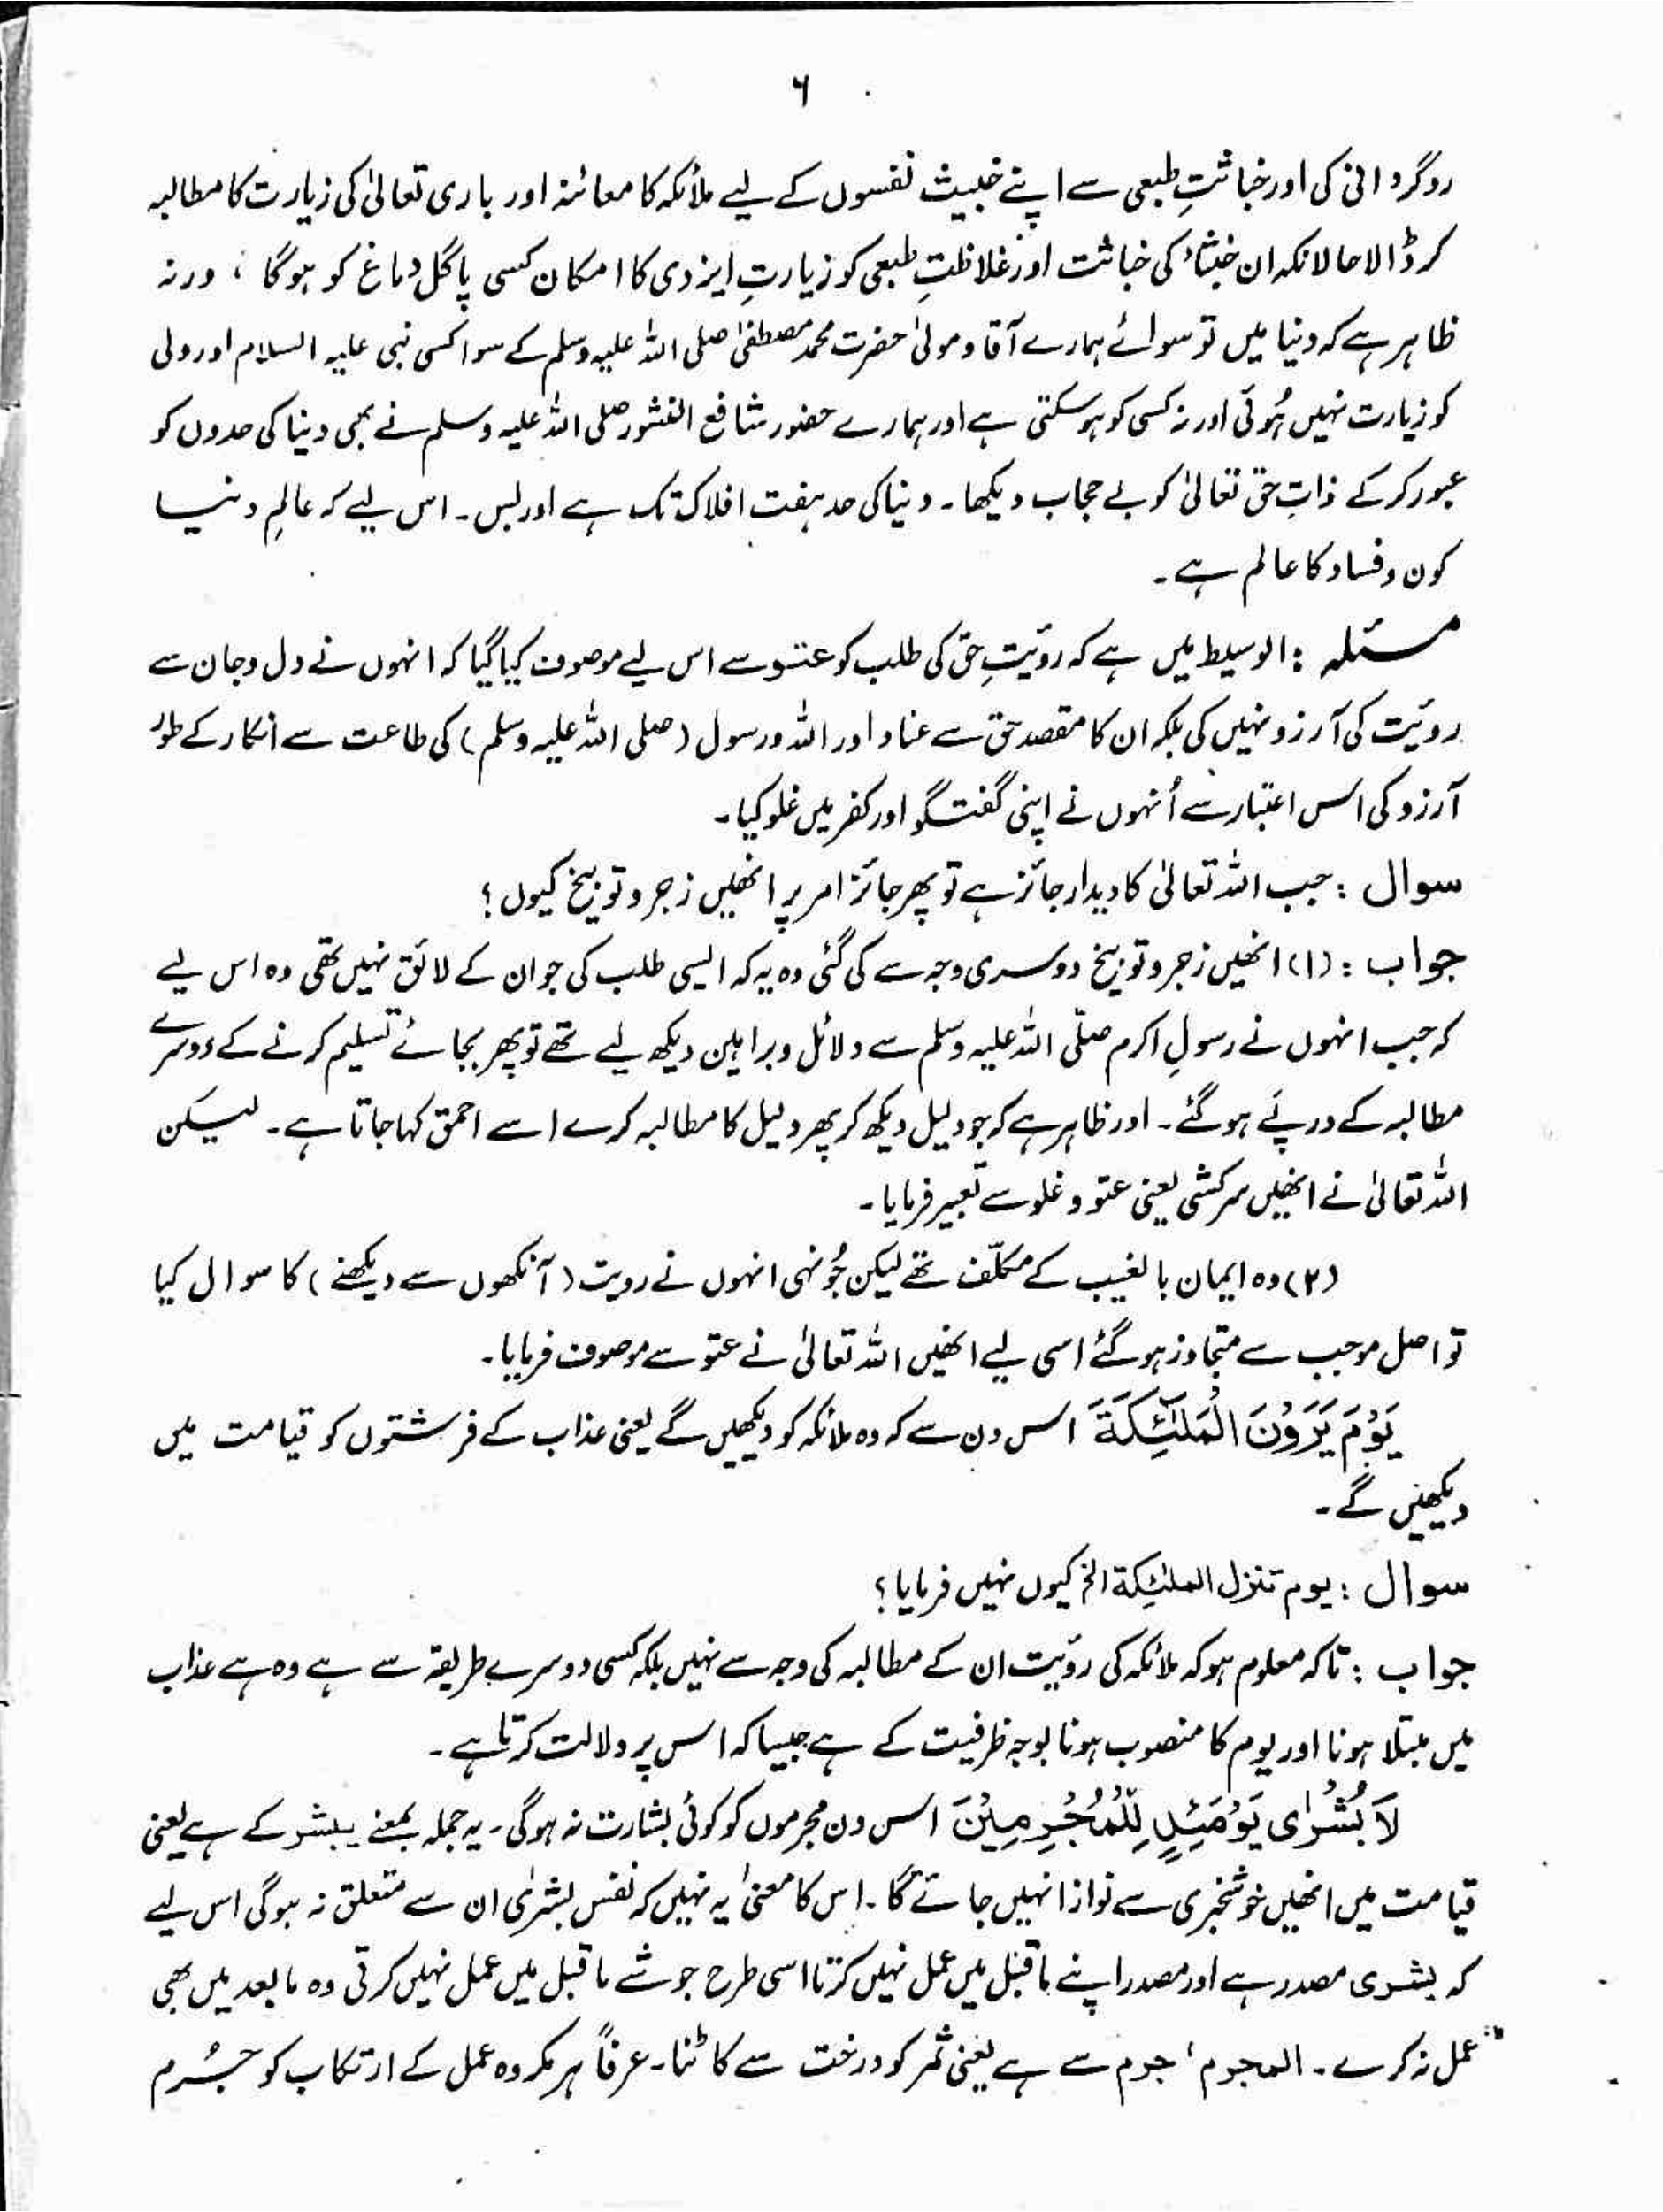 ۶
روگردانی کی اور خباثتِ طبعی سے اپنے خبیث نفسوں کے لیے ملائکہ کا معائنہ اور باری تعالیٰ کی زیارت کا مطالبہ
کر ڈالا حالانکہ ان خبثاء کی خباثت اور غلاظتِ طبعی کو زیارتِ ایزدی کا امکان کسی پاگل دماغ کو ہوگا ، ورنہ
ظاہر ہے کہ دنیا میں تو سوائے ہمارے آقا و مولیٰ حضرت محمد مصطفیٰ صلی اللہ علیہ وسلم کے سوا کسی نبی علیہ السلام اور ولی
کو زیارت نہیں ہُوئی اور نہ کسی کو ہو سکتی ہے اور ہمارے حضور شافع النشور صلی اللہ علیہ وسلم نے بھی دنیا کی حدوں کو
عبور کر کے ذاتِ حق تعالیٰ کو بے حجاب دیکھا ۔ دنیا کی حد ہفت افلاک تک ہے اور بس ۔ اس لیے کہ عالمِ دنیا
کون و فساد کا عالم ہے ۔
مسئلہ : الوسیط میں ہے کہ رؤیتِ حق کی طلب کو عتو سے اس لیے موصوف کیا گیا کہ انہوں نے دل و جان سے
رویَت کی آرزو نہیں کی بلکہ ان کا مقصد حق سے عناد اور اللہ و رسول (صلی اللہ علیہ وسلم) کی طاعت سے انکار کے طور
آرزو کی اس اعتبار سے اُنہوں نے اپنی گفتگو اور کفر میں غلو کیا ۔
سوال : جب اللہ تعالیٰ کا دیدار جائز ہے تو پھر جائز امر پر انھیں زجر و توبیخ کیوں ؟
جواب : (۱) انھیں زجر و توبیخ دوسری وجہ سے کی گئی وہ یہ کہ ایسی طلب کی جو ان کے لائق نہیں تھی وہ اس لیے
کہ جب انہوں نے رسولِ اکرم صلّی اللہ علیہ وسلم سے دلائل و براہین دیکھ لیے تھے تو پھر بجائے تسلیم کرنے کے دوسرے
مطالبہ کے درپَے ہو گئے ۔ اور ظاہر ہے کہ جو دلیل دیکھ کر پھر دلیل کا مطالبہ کرے اسے احمق کہا جاتا ہے ۔ لیکن
اللہ تعالیٰ نے انھیں سرکشی یعنی عتو و غلو سے تعبیر فرمایا ۔
(۲) وہ ایمان بالغیب کے مکلّف تھے لیکن جُونہی انہوں نے رویت (آنکھوں سے دیکھنے) کا سوال کیا
تو اصل موجب سے متجاوز ہو گئے اسی لیے انھیں اللہ تعالیٰ نے عتو سے موصوف فرمایا ۔
يَوْمَ يَرَوْنَ الْمَلٰٓئِكَةَ اس دن سے کہ وہ ملائکہ کو دیکھیں گے یعنی عذاب کے فرشتوں کو قیامت میں
دیکھیں گے ۔
سوال : یوم تنزل الملٰئکۃ الخ کیوں نہیں فرمایا ؟
جواب : تاکہ معلوم ہو کہ ملائکہ کی رویَت ان کے مطالبہ کی وجہ سے نہیں بلکہ کسی دوسرے طریقہ سے ہے وہ ہے عذاب
میں مبتلا ہونا اور یوم کا منصوب ہونا بوجہ ظرفیت کے ہے جیسا کہ اس پر دلالت کرتا ہے ۔
لَا بُشْرٰى يَوْمَئِذٍ لِّلْمُجْرِمِيْنَ اس دن مجرموں کو کوئی بشارت نہ ہوگی ۔ یہ جملہ بمعنے یبشر کے ہے یعنی
قیامت میں انھیں خوشخبری سے نوازا نہیں جائے گا ۔ اس کا معنیٰ یہ نہیں کہ نفس بشریٰ ان سے متعلق نہ ہوگی اس لیے
کہ بشری مصدر ہے اور مصدر اپنے ماقبل میں عمل نہیں کرتا اسی طرح جو شے ماقبل میں عمل نہیں کرتی وہ مابعد میں بھی
عمل نہ کرے ۔ المجرم ، جرم سے ہے یعنی ثمر کو درخت سے کاٹنا ۔ عرفاً ہر مکروہ عمل کے ارتکاب کو جُرم